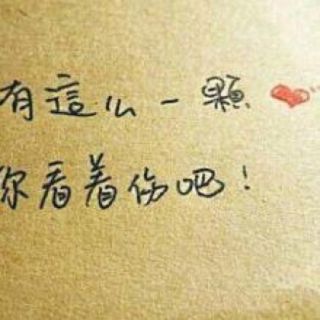 有這么一顆
你看着伤吧！